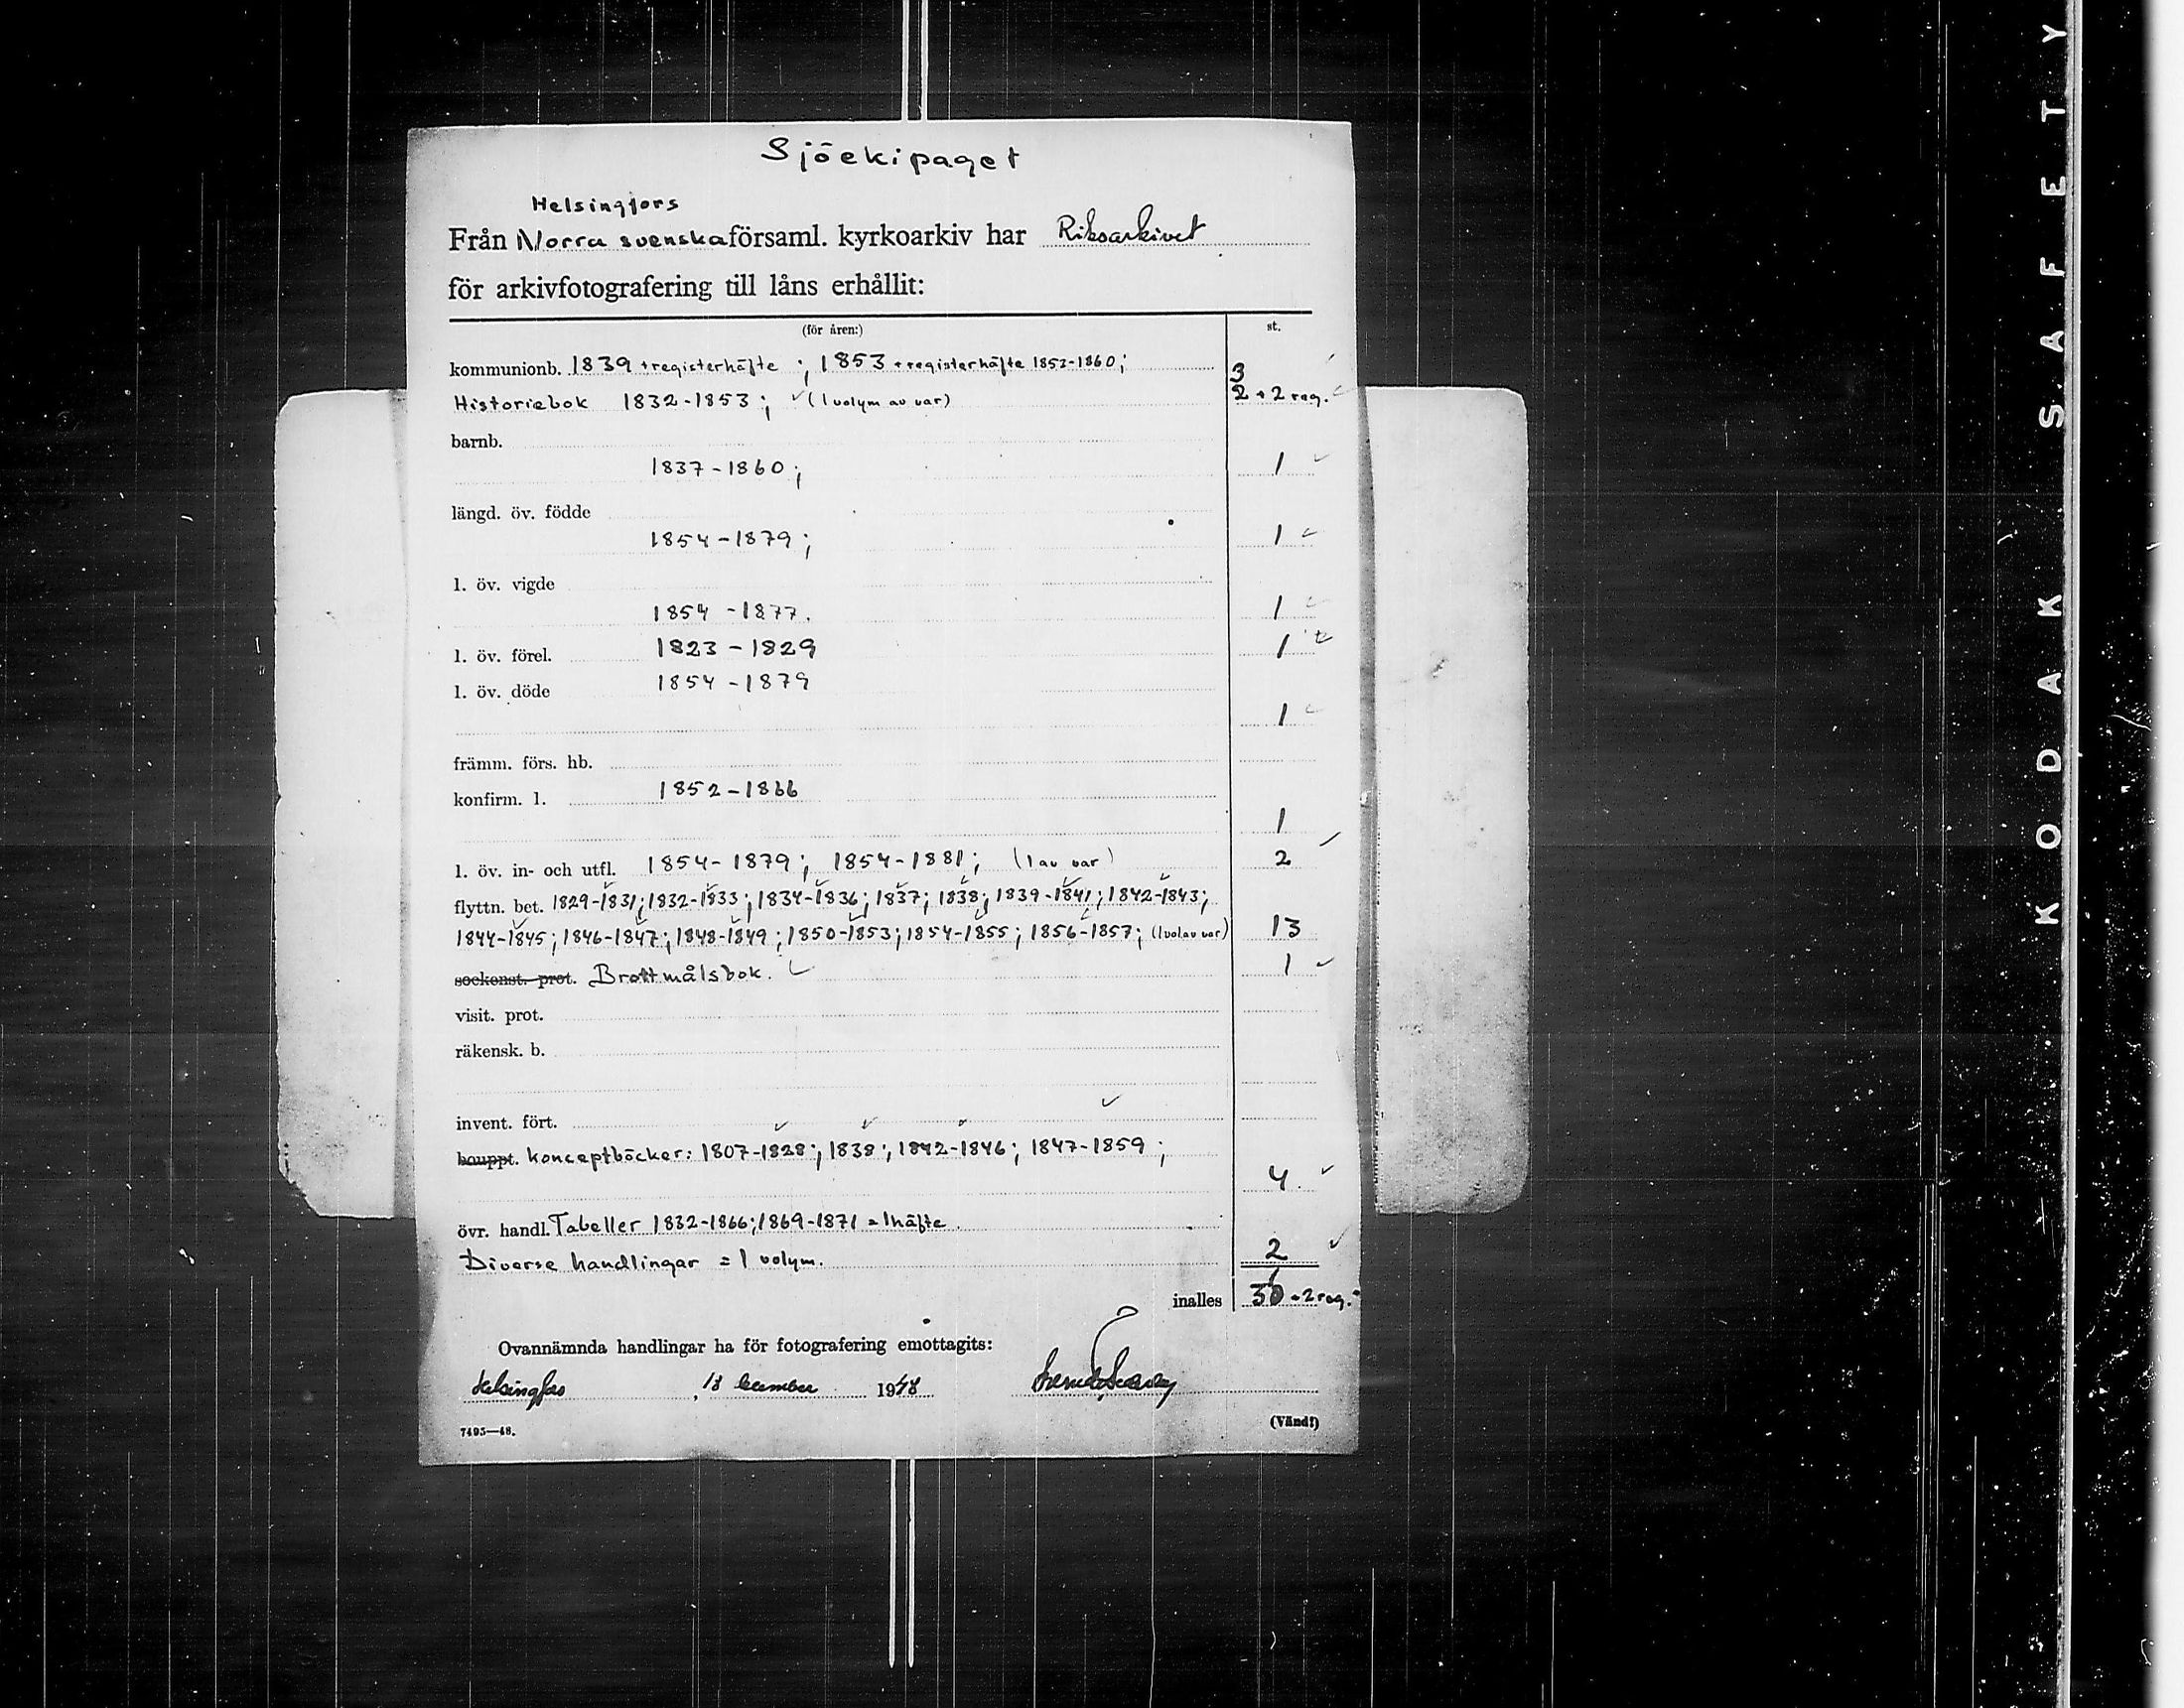 Sjöekipaget
Helsingfors
Från Norra svenska församl. kyrkoarkiv har Riksarkivet
för arkivfotografering till låns erhållit:
(för åren:) st.
kommunionb. 1839 + registerhäfte ; 1853 + registerhäfte 1853-1860; 3
Historiebok 1832-1853; (1 volym av var) 2 + 2 reg.
barnb.
1837-1860; 1
längd. öv. födde
1854-1879; 1
l. öv. vigde
1854-1877. 1
l. öv. förel. 1823-1829 1
l. öv. döde 1854-1879
1
främm. förs. hb.
konfirm. l. 1852-1866
1
l. öv. in- och utfl. 1854-1879; 1854-1881; (1 av var) 2
flyttn. bet. 1829-1831; 1832-1833; 1834-1836; 1837; 1838; 1839-1841; 1842-1843;
1844-1845; 1846-1847; 1848-1849; 1850-1853; 1854-1855; 1856-1857; (1 vol av var) 13
sockenst. prot. Brottmålsbok. 1
visit. prot.
räkensk. b.
invent. fört.
bouppt. Konceptböcker: 1807-1828; 1838; 1842-1846; 1847-1859;
4.
övr. handl. Tabeller 1832-1866; 1869-1871 = 1 häfte.
Diverse handlingar = 1 volym. 2
inalles 2 reg.
Ovannämnda handlingar ha för fotografering emottagits:
Helsingfors, 18 1948
7495—48. (Vänd!)
KODAK SAFETY